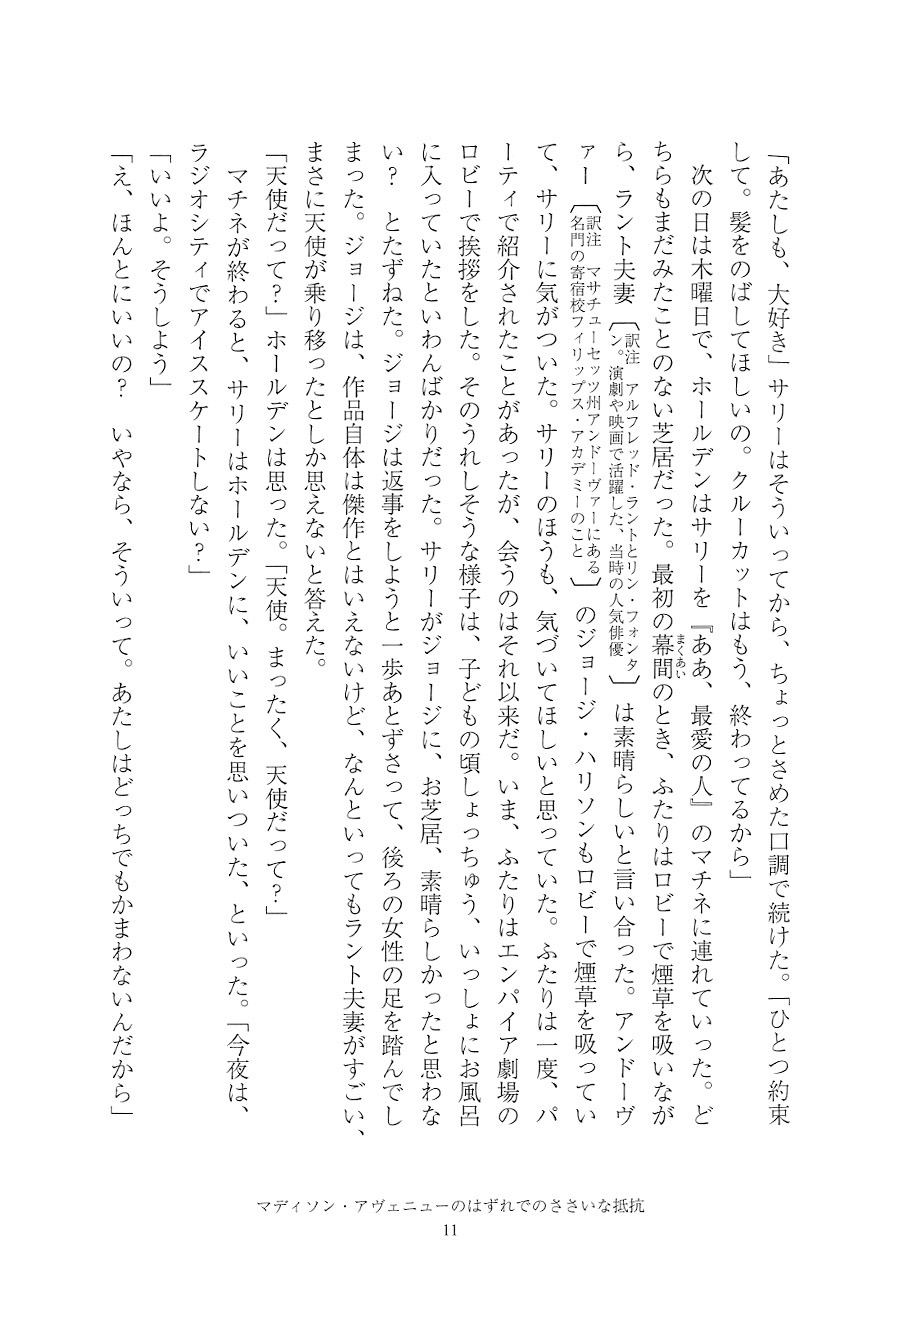 「あたしも、大好き」サリーはそういってから、ちょっとさめた口調で続けた。「ひとつ約束
して。髪をのばしてほしいの。クルーカットはもう、終わってるから」
　次の日は木曜日で、ホールデンはサリーを『ああ、最愛の人』のマチネに連れていった。ど
ちらもまだみたことのない芝居だった。最初の幕間まくあいのとき、ふたりはロビーで煙草を吸いなが
ら、ラント夫妻〔訳注　アルフレッド・ラントとリン・フォンタン。演劇や映画で活躍した、当時の人気俳優〕は素晴らしいと言い合った。アンドーヴ
ァー〔訳注　マサチューセッツ州アンドーヴァーにある名門の寄宿校フィリップス・アカデミーのこと〕のジョージ・ハリソンもロビーで煙草を吸ってい
て、サリーに気がついた。サリーのほうも、気づいてほしいと思っていた。ふたりは一度、パ
ーティで紹介されたことがあったが、会うのはそれ以来だ。いま、ふたりはエンパイア劇場の
ロビーで挨拶をした。そのうれしそうな様子は、子どもの頃しょっちゅう、いっしょにお風呂
に入っていたといわんばかりだった。サリーがジョージに、お芝居、素晴らしかったと思わな
い？　とたずねた。ジョージは返事をしようと一歩あとずさって、後ろの女性の足を踏んでし
まった。ジョージは、作品自体は傑作とはいえないけど、なんといってもラント夫妻がすごい、
まさに天使が乗り移ったとしか思えないと答えた。
「天使だって？」ホールデンは思った。「天使。まったく、天使だって？」
　マチネが終わると、サリーはホールデンに、いいことを思いついた、といった。「今夜は、
ラジオシティでアイススケートしない？」
「いいよ。そうしよう」
「え、ほんとにいいの？　いやなら、そういって。あたしはどっちでもかまわないんだから」
マディソン・アヴェニューのはずれでのささいな抵抗
11